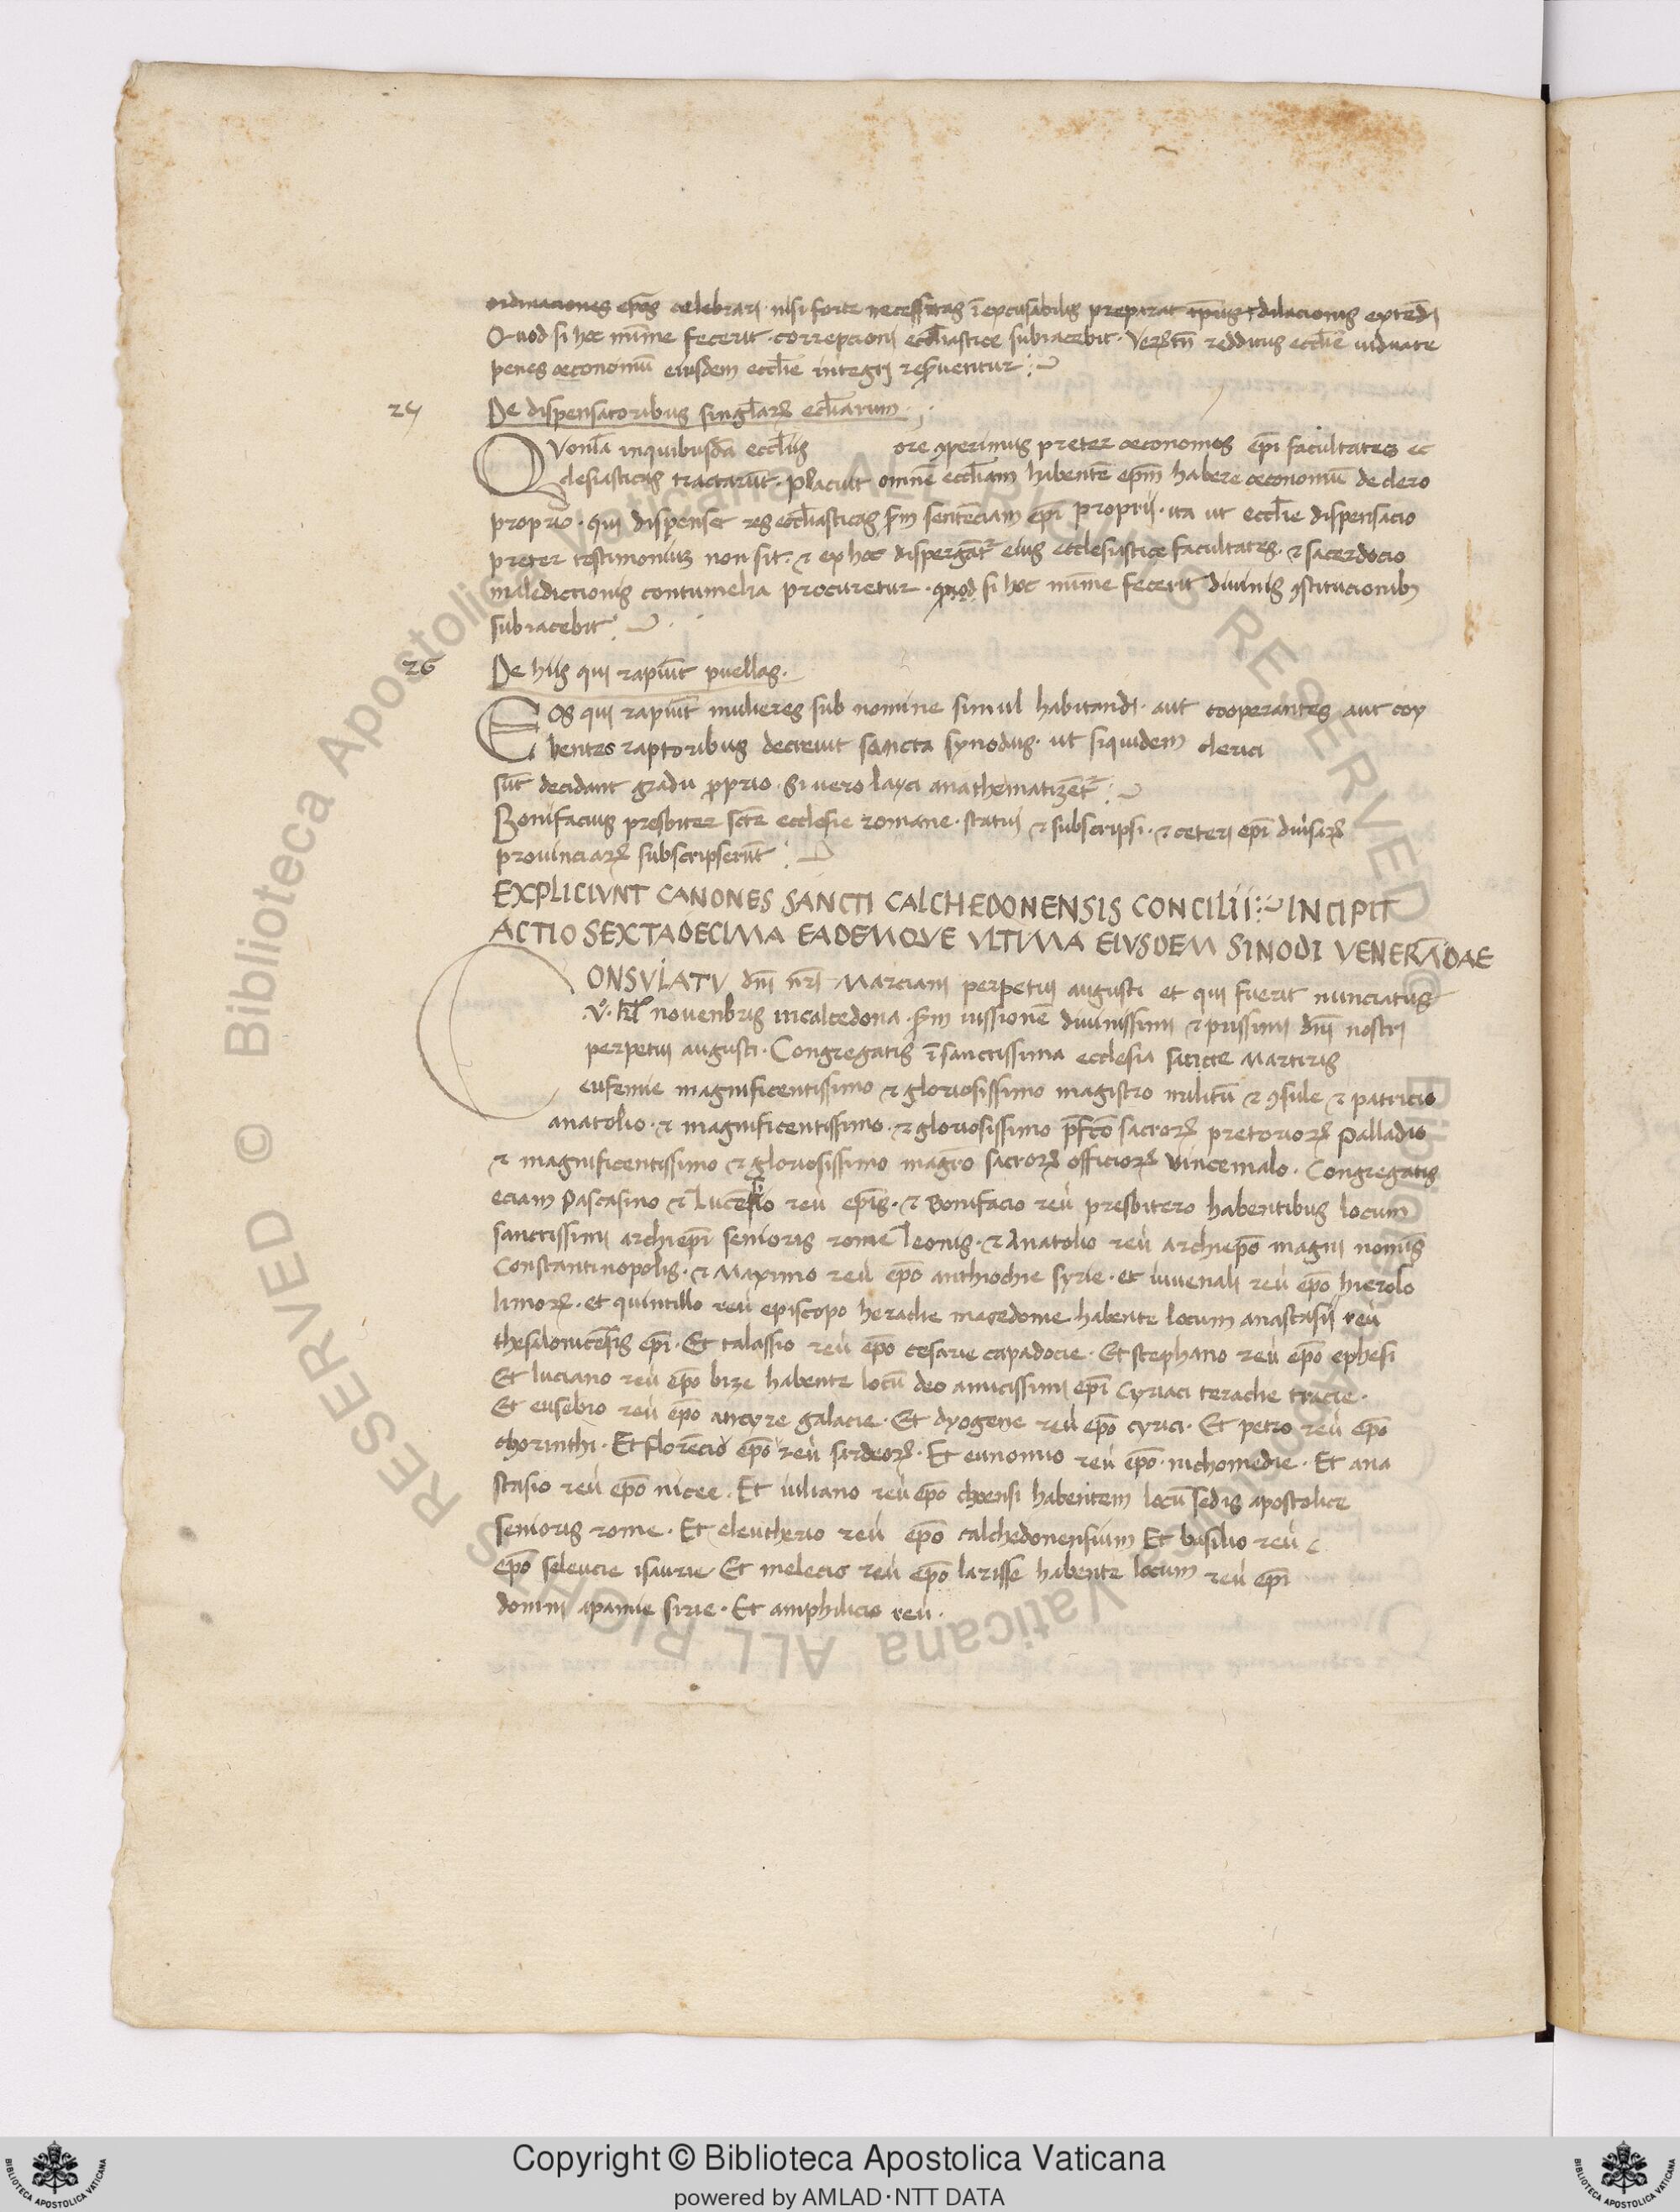 ordinaciones epos celebrari · nisi forte necessitas ī excusabilis preparat tp̄us dilacionis extēdi
Quod si hoc mīme fecerit · correpcioni eccl̄iastice subiacebit · Verūtn̄ redditus eccl̄ie viduate
penes œconomū eiusdem eccl̄ie integri reseruentur
25 De dispensatoribus singl̄arꝝ ecl̄iarum
QVonīa in quibusdā eccl̄iis ore ꝯperimus preter œconomos ep̄i facultates ec
clesiasticas tractarūt · placuit omnē eccl̄iam habentē ep̄m habere œconomū de clero
proprio · qui dispenset res eccl̄iasticas s̄m sentēciam ep̄i proprii · ita ut eccl̄ie dispensacio
preter testimonium non sit · & ex hoc dispergāt eius ecclesiastice facultates · & sacerdocio
maledictionis contumelia procuretur · quod si hoc mīme fecerit diuinis ꝯstitucionibꝫ
subiacebit
26 De hiis qui rapiūt puellas ·
EOs qui rapiūt mulieres sub nomine simul habitandi · aut cooperantes aut coy
bentes raptoribus decreuit sancta synodus · ut siquidem clerici
sūt decidant gradu proprio · Si uero layci anathematizēt
Bonifacius presbiter scte ecclesie romane · statui & subscripsi · & ceteri ep̄i diuisarꝝ
prouinciarꝝ subscripserūt
EXPLICIVNT CANONES SANCTI CALCHEDONENSIS CONCILII INCIPIT
ACTIO SEXTADECIMA EADEMQVE VLTIMA EIVSDEM SINODI VENERĀDAE
CONSVLATV dn̄i nr̄i Marciani perpetui augusti et qui fuerit nunciatus
·V· kl̄ nouenbris in calcedona · s̄m iussionē diuinissimi & piissimi dn̄i nostri
perpetui augusti · Congregatis ī sanctissima ecclesia sancte Martiris
eufemie magnificentissimo & gloriosissimo magistro militū & ꝯsule & patricio
anatolio · & magnificentissimo · & gloriosissimo p̄fc̄o sacrorꝝ pretoriorꝝ palladio
& magnificentissimo & gloriosissimo magr̄o sacrorꝝ officiorꝝ vincemalo · Congregatis
eciam Pascasino & lucēsio reu̇ ep̄is · & Bonifacio reu̇ presbitero habentibus locum
sanctissimi archiep̄i senioris rome leonis · & Anatolio reu̇ archiep̄o magni nomīs
Constantinopolis · & Maximo reu̇ ep̄o anthiochie syrie · et iuuenali reu̇ ep̄o hierolo
limorꝝ · et quintillo reu̇ episcopo heraclie macedonie habente locum anastasii reu̇
thesalonicēsis ep̄i · Et talassio reu̇ ep̄o cesarie capadocie · Et stephano reu̇ ep̄o ephesi
Et luciano reu̇ ep̄o bize habente locū deo amicissimi ep̄i Cyriaci teraclie tracie ·
Et eusebio reu̇ ep̄o ancyre galacie · Et dyogene reu̇ ep̄o cyrici · Et petro reu̇ ep̄o
chorinthi · Et florēcio ep̄o reu̇ sardeorꝝ · Et eunomio reu̇ ep̄o · nichomedie · Et ana
stasio reu̇ ep̄o nicee · Et iuliano reu̇ ep̄o choensi habentem locū sedis apostolice
senioris rome · Et eleutherio reu̇ ep̄o calchedonensium Et basilio reu̇
ep̄o seleucie isaurie Et melecio reu̇ ep̄o larisse habente locum reu̇ ep̄i
domini apamie sirie · Et amphilicio reu̇ ·
© Biblioteca Apostolica Vaticana ALL RIGHTS RESERVED
Copyright © Biblioteca Apostolica Vaticana
powered by AMLAD·NTT DATA